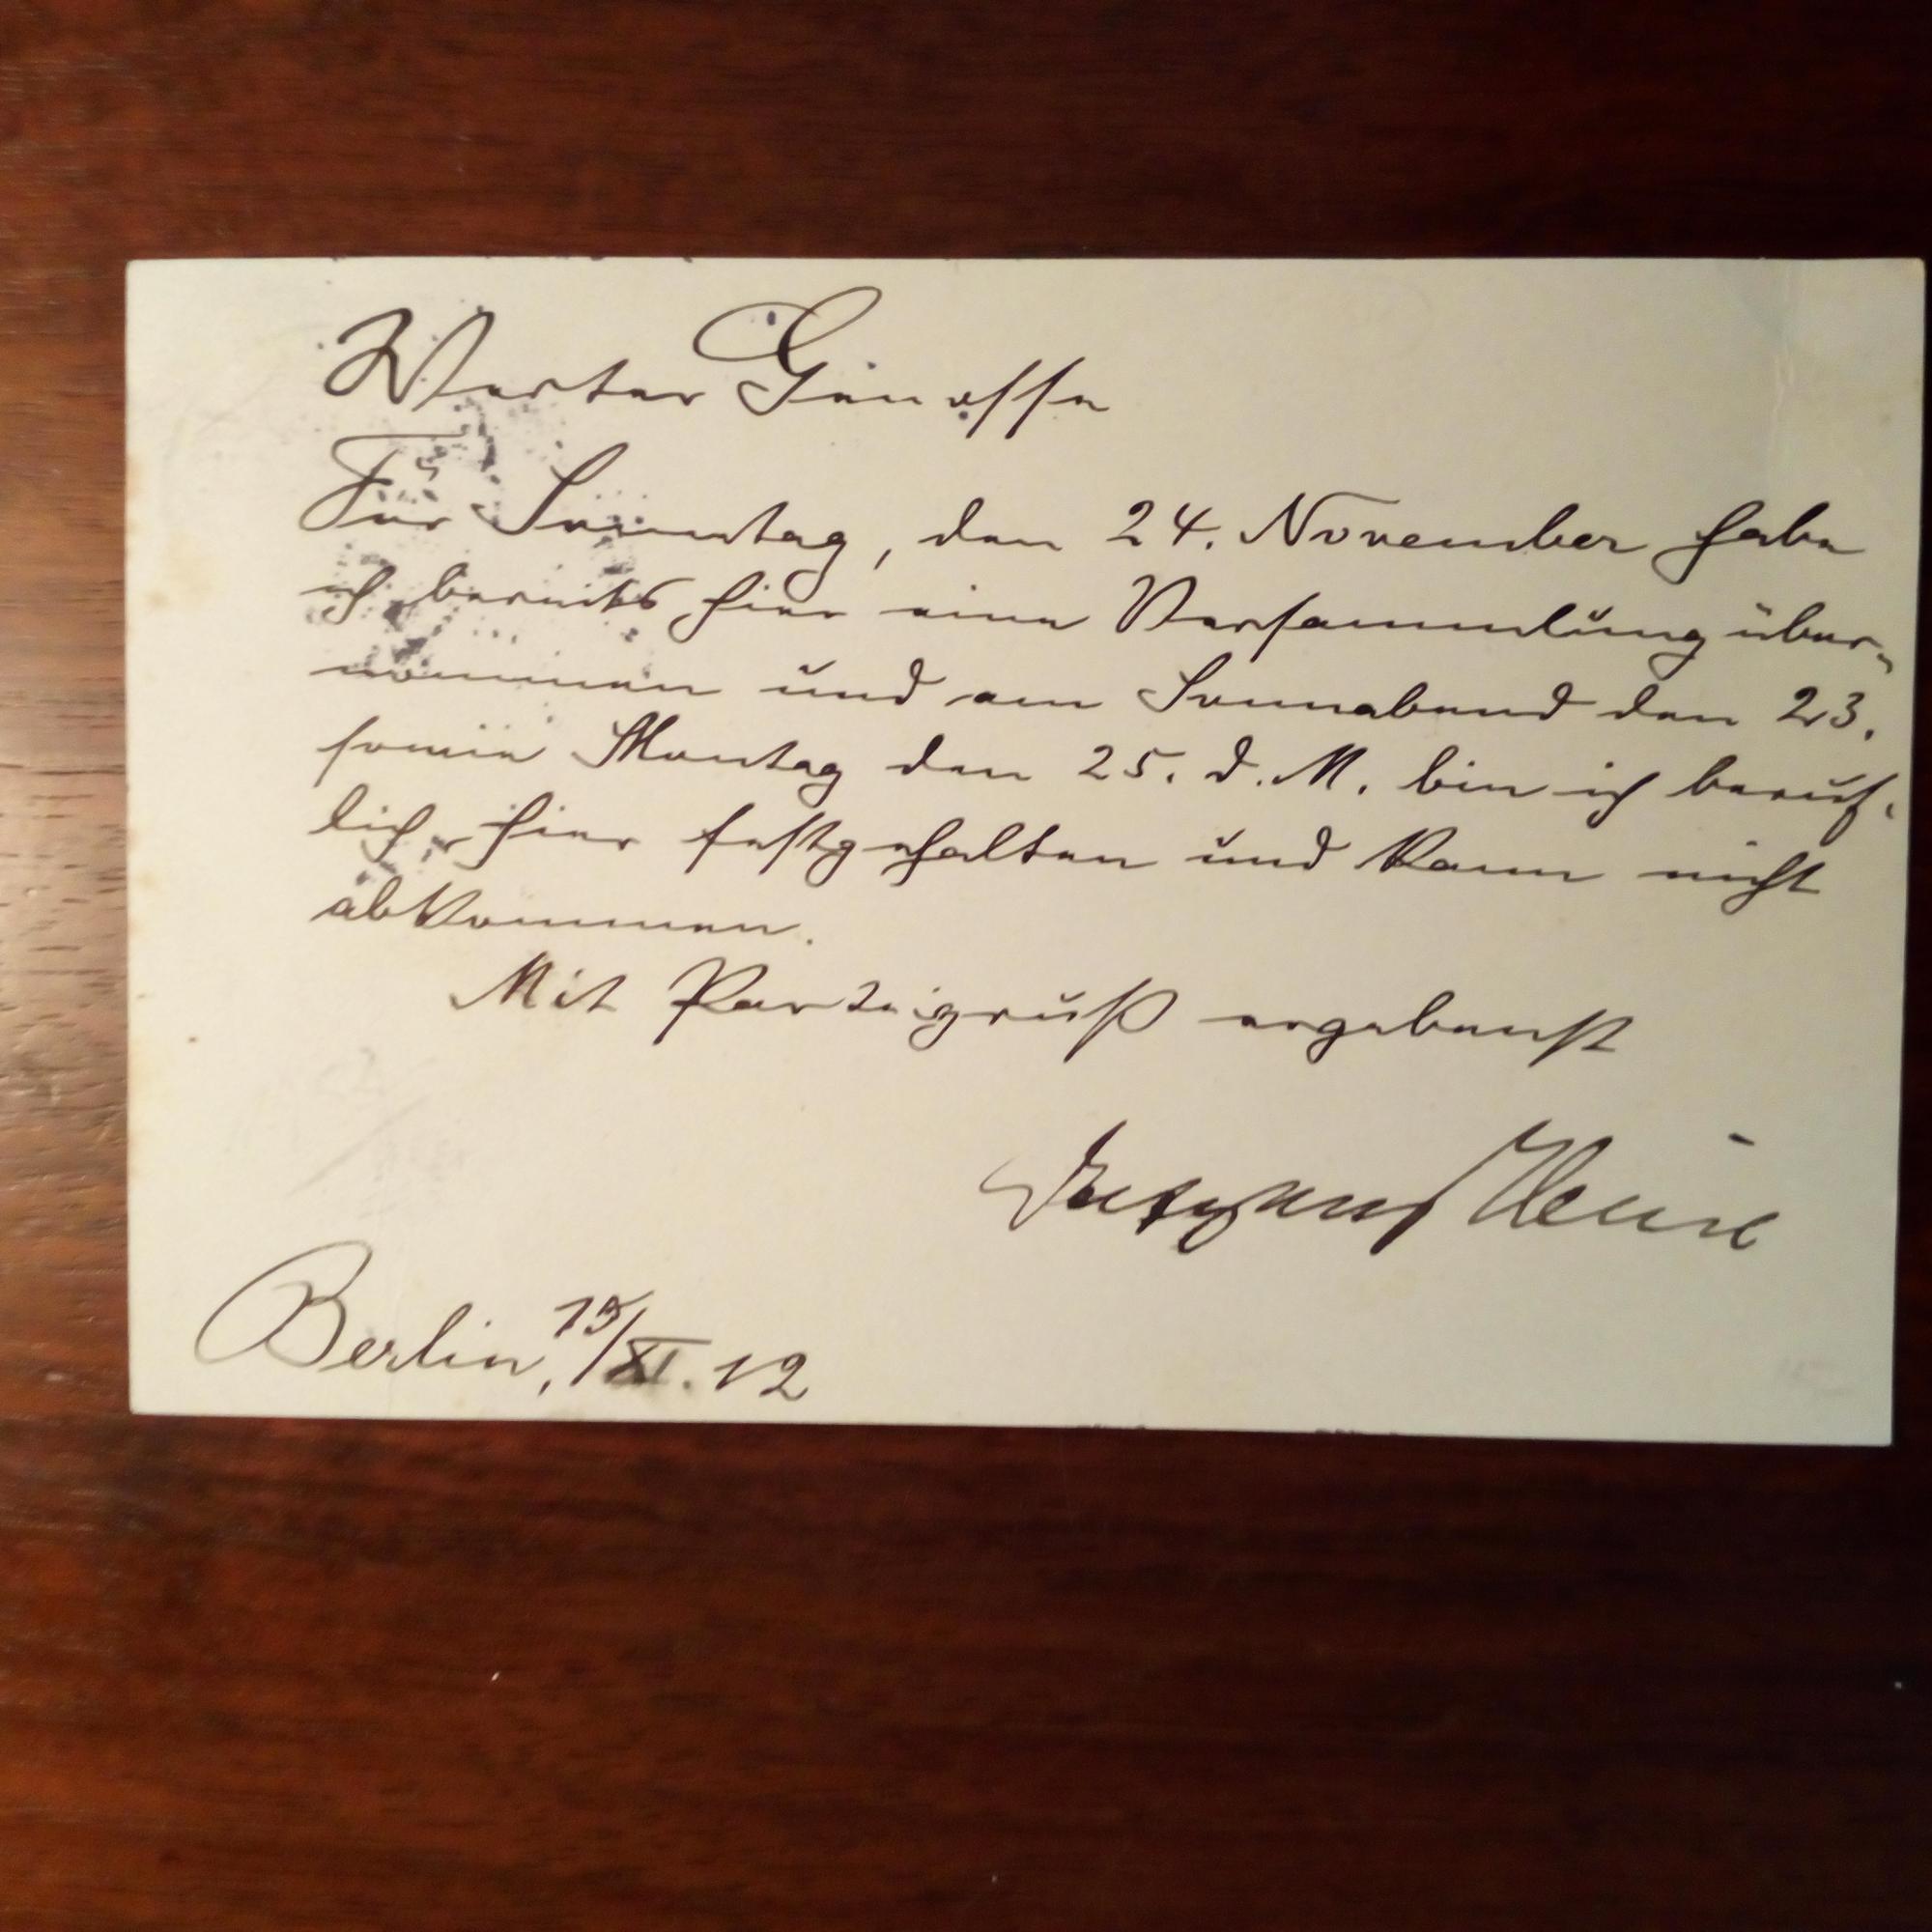 Werter Genosse
Für Sonntag, den 24. November habe
ich bereits hier eine Versammlung über-
nommen und am Sonnabend den 23.
sowie Montag den 25. d. M. bin ich beruf-
lich hier festgehalten und kann nicht
abkommen.
Mit Parteigruß ergebenst
Wolfgang Heine
Berlin, 15/XI. 12